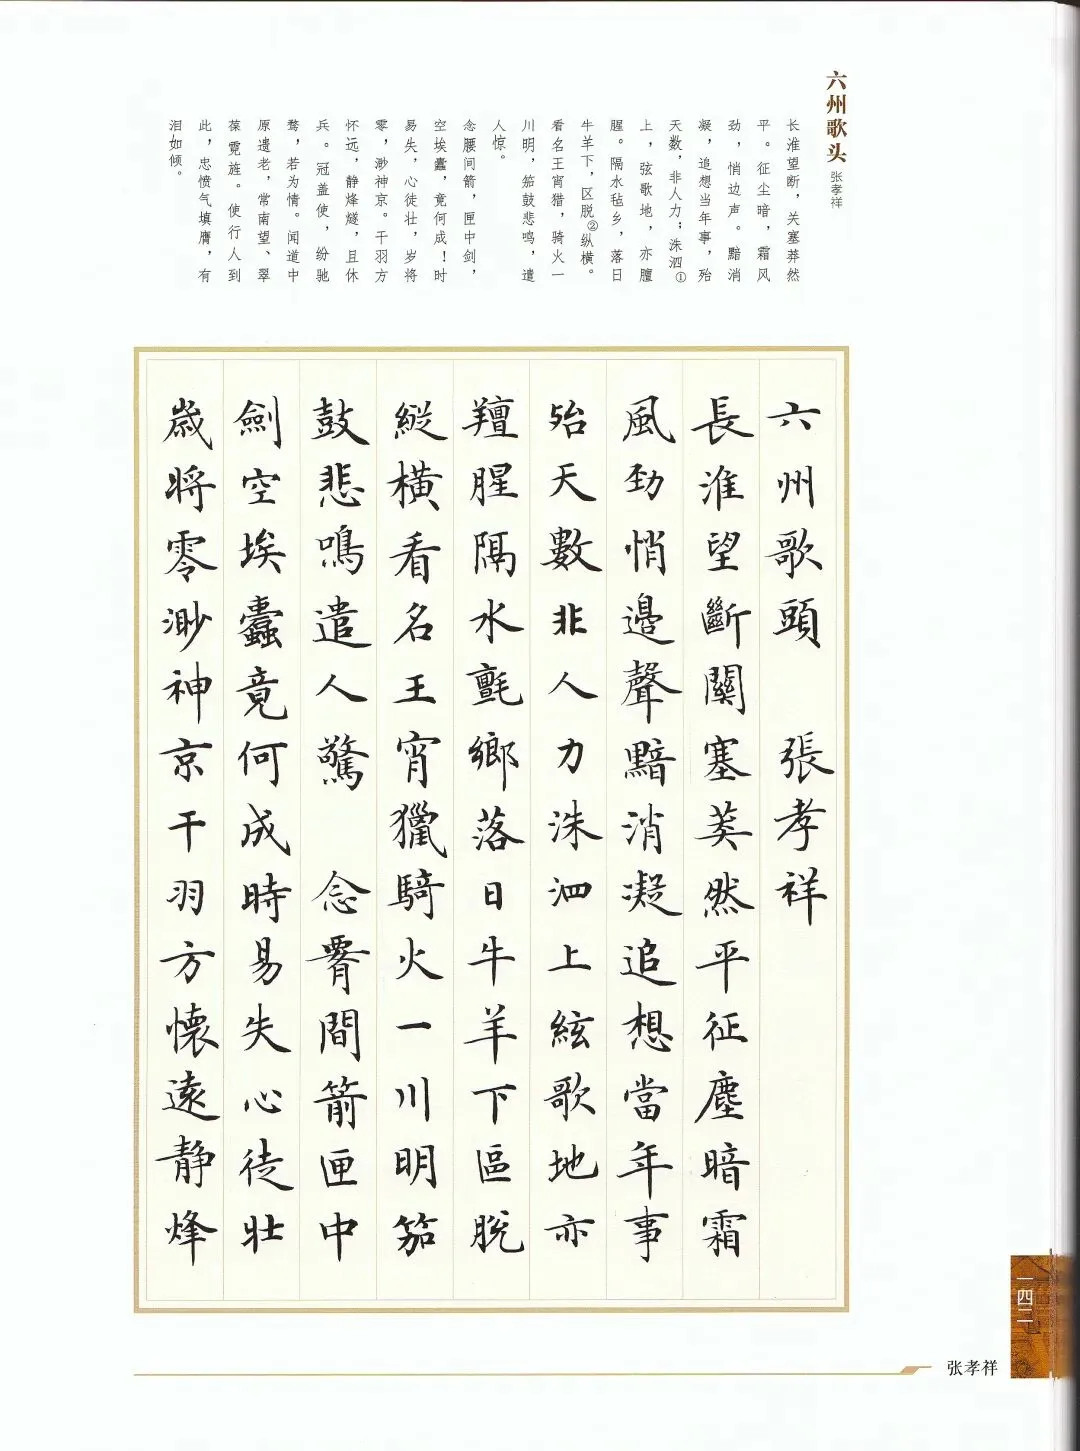 六州歌头 张孝祥
长淮望断，关塞莽然
平。征尘暗，霜风
劲，悄边声。黯消
凝，追想当年事，殆
天数，非人力；洙泗①
上，弦歌地，亦膻
腥。隔水毡乡，落日
牛羊下，区脱②纵横。
看名王宵猎，骑火一
川明，笳鼓悲鸣，遣
人惊。
念腰间箭，匣中剑，
空埃蠹，竟何成！时
易失，心徒壮，岁将
零，渺神京。干羽方
怀远，静烽燧，且休
兵。冠盖使，纷驰
骛，若为情。闻道中
原遗老，常南望、翠
葆霓旌。使行人到
此，忠愤气填膺，有
泪如倾。
六州歌頭 張孝祥
長淮望斷關塞莽然平征塵暗霜
風勁悄邊聲黯消凝追想當年事
殆天數非人力洙泗上絃歌地亦
羶腥隔水氈鄉落日牛羊下區脫
縱橫看名王宵獵騎火一川明笳
鼓悲鳴遣人驚 念腰間箭匣中
劍空埃蠹竟何成時易失心徒壯
歲將零渺神京干羽方懷遠靜烽
一四二
张孝祥